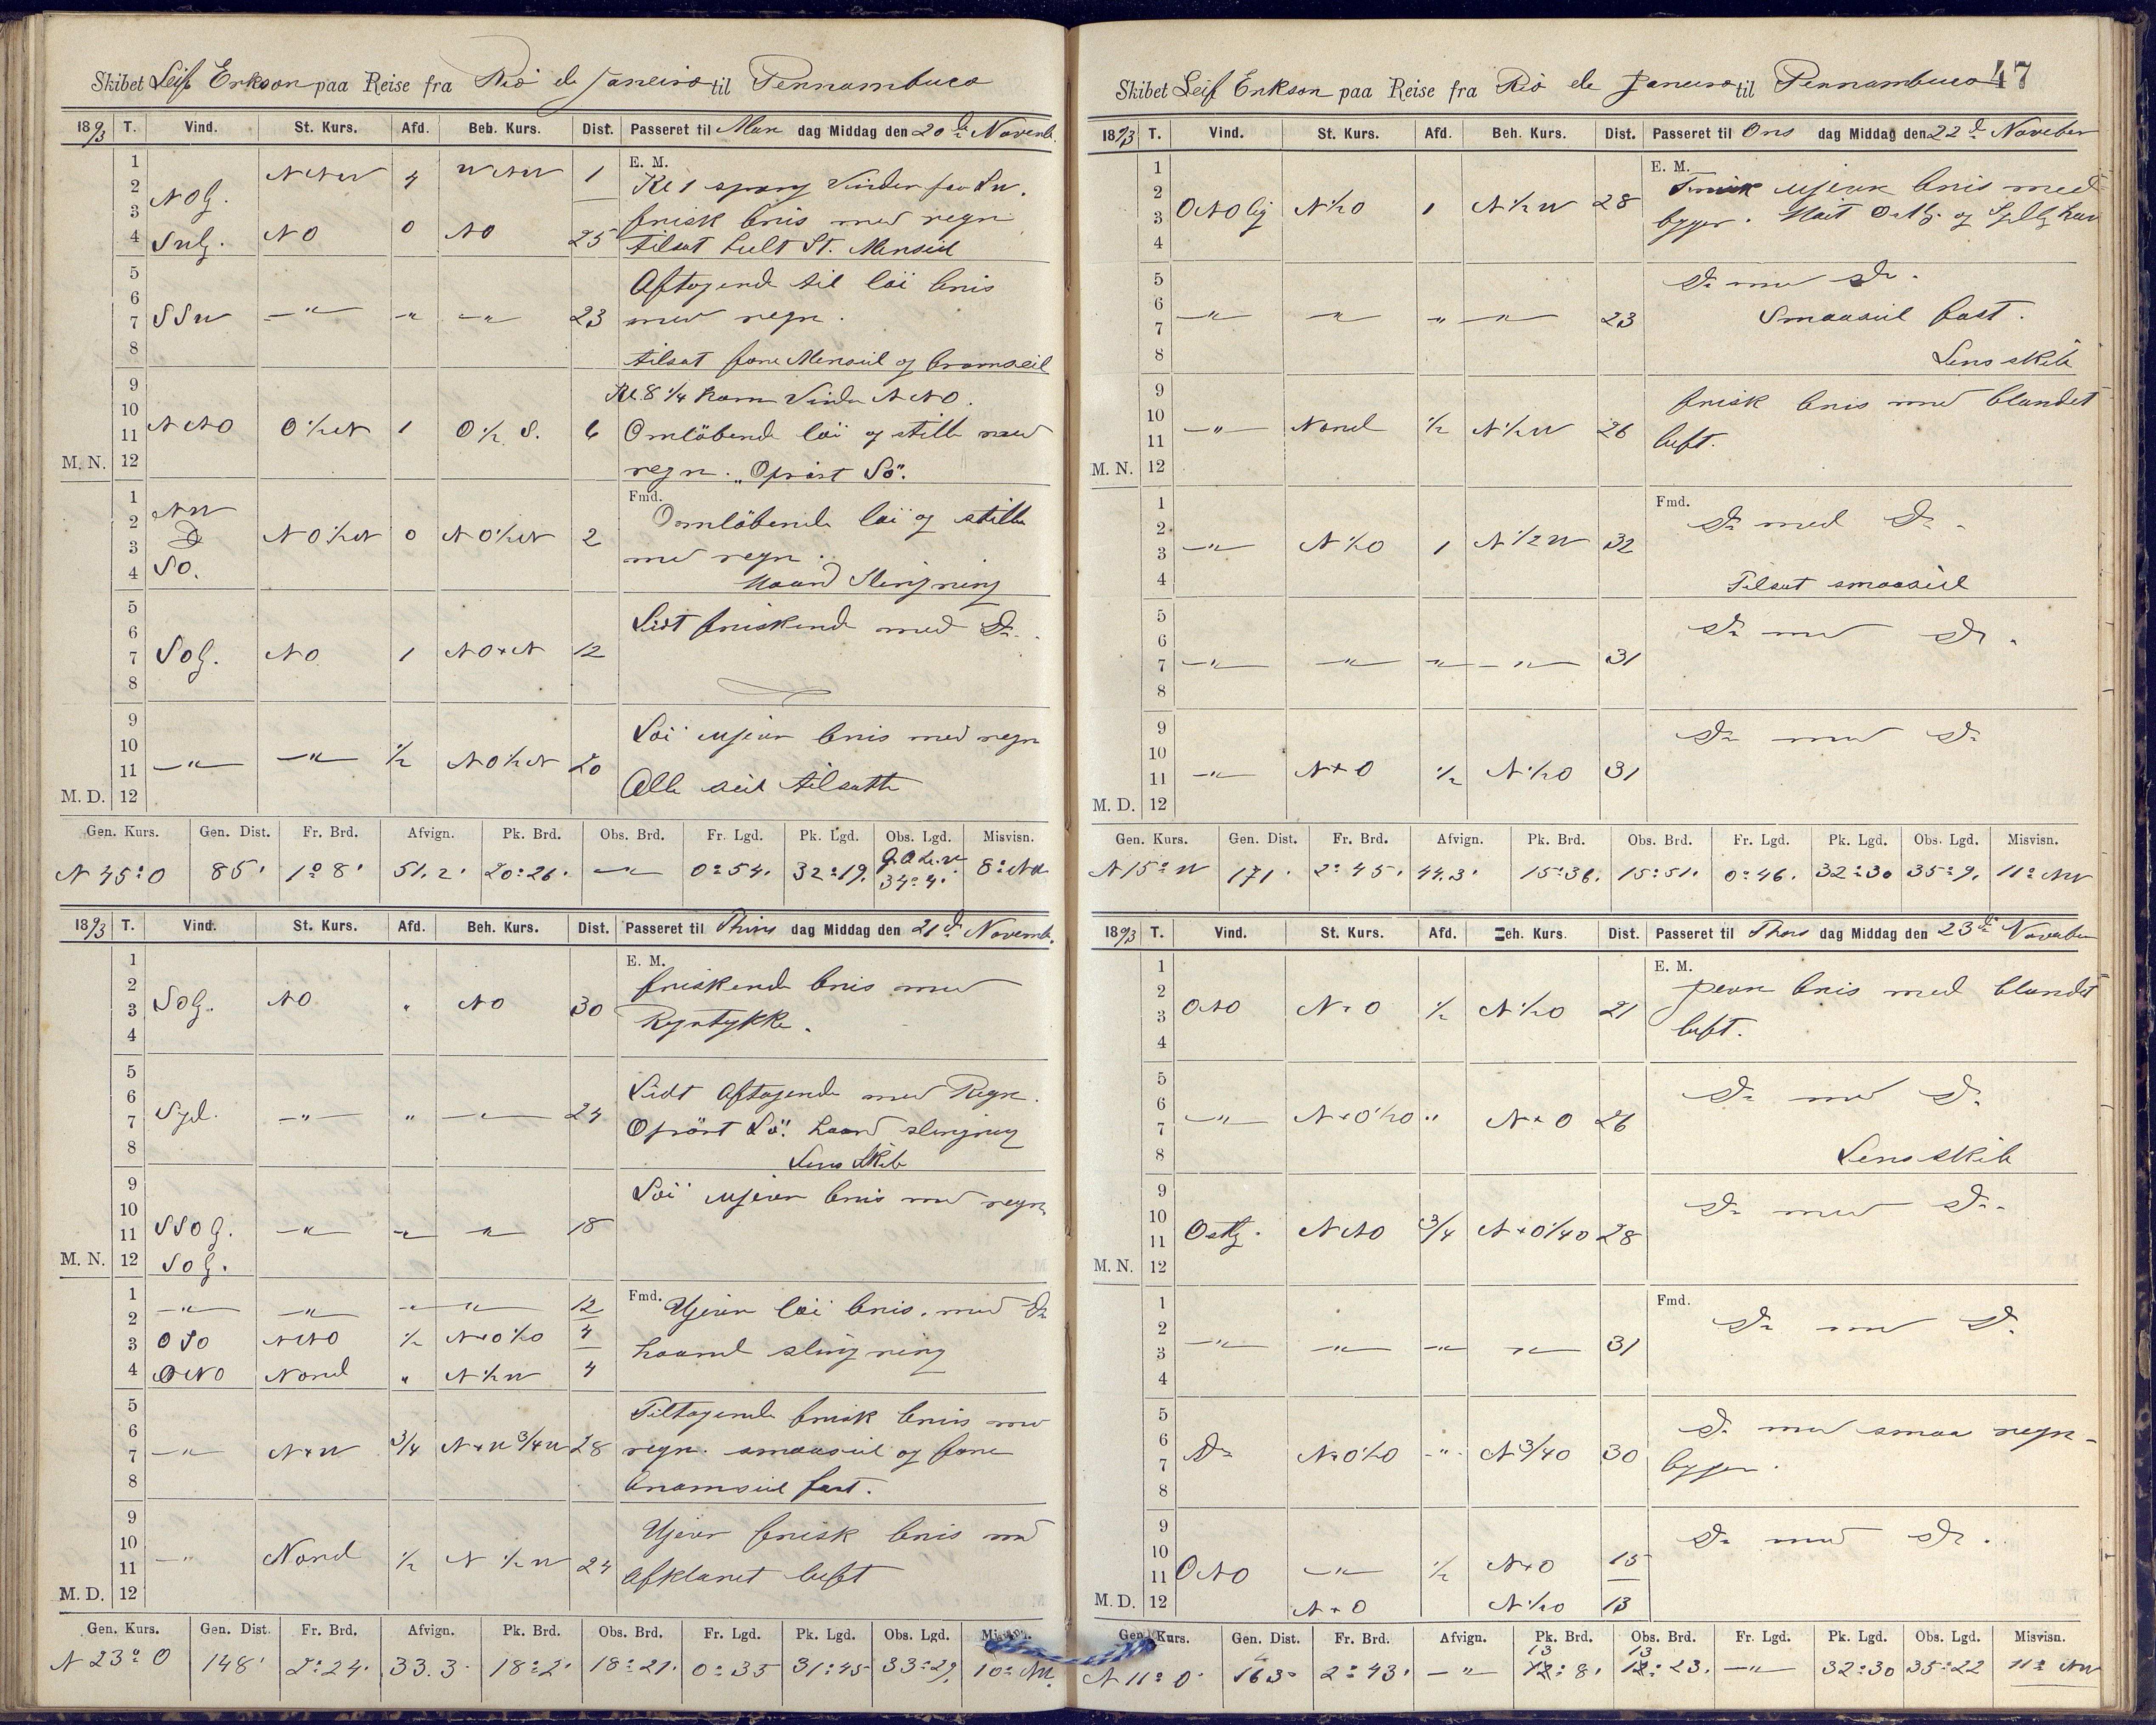 Skibet Leif Erikson paa Reise fra Rio de Janeiro til Pernambuco
1893 T. Vind. St. Kurs. Afd. Beh. Kurs. Dist. Passeret til Man dag Middag den 20de Novemb.
1 NNW 4 WNW 1 E. M.
2 NOlg. Kl 1 sprang Vinden paa SW.
3 frisk bris med regn
4 SWlg. NO 0 NO 25 tilsat helt St. Mersseil
5 Aftagende til löi bris
6
7 SSW —"— " —"— 23 med regn.
8 tilsat forre Merseil og bramseil
9 Kl. 8 1/4 kom Vinden NNO.
10
11 NNO O 1/2 N 1 O 1/2 S. 6 Omlöbende löi og stille med
M. N. 12 regn. "Oprört Sö".
1 NW Fmd.
2 Omlöbende löi og stille
3 Do NO 1/2 N 0 NO 1/2 N 2 med regn.
4 SO. Haard Slingring
5
6 Lidt friskende med Do.
7 SOlg. NO 1 NO x N 12
8
9
10 Löi ujevn bris med regn
11 —"— —"— 1/2 NO 1/2 N 20
M. D. 12 Alle seil tilsatte
Gen. Kurs. Gen. Dist. Fr. Brd. Afvign. Pk. Brd. Obs. Brd. Fr. Lgd. Pk. Lgd. Obs. Lgd. Misvisn.
N 45° O 85' 1° 8' 51.2' 20° 26' —"— 0° 54' 32° 19' 34° 4' 8° NW
1893 T. Vind. St. Kurs. Afd. Beh. Kurs. Dist. Passeret til Thirs dag Middag den 21de Novemb.
1 E. M.
2 friskende bris med
3 SOlg. NO " NO 30 Regntykke.
4
5
6 Lidt Aftagende med Regn.
7 Syd. —"— " —"— 24 Oprört Sö. haard slingring
8 Lens Skib
9 Löi ujevn bris med regn
10
11 SSOlg. —"— —"— —"— 18
M. N. 12 SOlg.
1 —"— —"— —"— —"— 12 Fmd. Ujevn löi bris. med Do
2
3 OSO NNO 1/2 N x O 1/2 O 4 haard slingring
4 ONO Nord " N 1/2 W 4
5 Tiltagende frisk bris med
6
7 —"— N x W 3/4 N x W 3/4 W 28 regn. smaaseil og forre
8 bramseil fast.
9
10 Ujevn frisk bris med
11 —"— Nord 1/2 N 1/2 W 24 afklaret luft
M. D. 12
Gen. Kurs. Gen. Dist. Fr. Brd. Afvign. Pk. Brd. Obs. Brd. Fr. Lgd. Pk. Lgd. Obs. Lgd. Misvisn.
N 23° O 148' 2° 24' 33.3' 18° 2' 18° 21' 0° 35 31° 45 33° 29' 10° NW.
47
Skibet Leif Erikson paa Reise fra Rio de Janeiro til Pernambuco
1893 T. Vind. St. Kurs. Afd. Beh. Kurs. Dist. Passeret til Ons dag Middag den 22de November
1 E. M.
2 Frisk ujevn bris med
3 ONOlig N 1/2 O 1 N 1/2 W 28 byger. Höit Ostlg. og Sydlg hav
4
5 Do med Do.
6
7 —"— —"— " —"— 23 Smaaseil fast.
8 Lens skib
9 frisk bris med blandet
10
11 —"— Nord 1/2 N 1/2 W 26 luft.
M. N. 12
1 Fmd.
2 Do med Do.
3 —"— N 1/2 O 1 N 1/2 W 32
4 Tilsat smaaseil
5
6 Do med Do.
7 —"— —"— —"— —"— 31
8
9 Do med Do
10
11 —"— N x O 1/2 N 1/2 O 31
M. D. 12
Gen. Kurs. Gen. Dist. Fr. Brd. Afvign. Pk. Brd. Obs. Brd. Fr. Lgd. Pk. Lgd. Obs. Lgd. Misvisn.
N 15° W 171' 2° 45' 44.3' 15° 36' 15° 51' 0° 46' 32° 30 35° 9' 11° NW
1893 T. Vind. St. Kurs. Afd. Beh. Kurs. Dist. Passeret til Thors dag Middag den 23de November
1 E. M.
2 jevn bris med blandet
3 ONO N x O 1/2 N 1/2 O 21 luft.
4
5
6 Do med Do
7 —"— N x O 1/2 O " N x O 26
8 Lens skib
9
10 Do med Do.
11 Ostlg. NNO 3/4 N x O 1/4 O 28
M. N. 12
1 Fmd.
2 Do med Do
3 —"— —"— —"— —"— 31
4
5
6 Do med smaa regn-
7 Do N x O 1/2 O —"— N 3/4 O 30 byger.
8
9
10 Do med Do.
11 ONO —"— 1/2 N x O 15
M. D. 12 N x O N 1/2 O 13
Gen. Kurs. Gen. Dist. Fr. Brd. Afvign. Pk. Brd. Obs. Brd. Fr. Lgd. Pk. Lgd. Obs. Lgd. Misvisn.
N 11° O 163' 2° 43' —"— 13° 8' 13° 23' —"— 32° 30 35° 22 11° NW